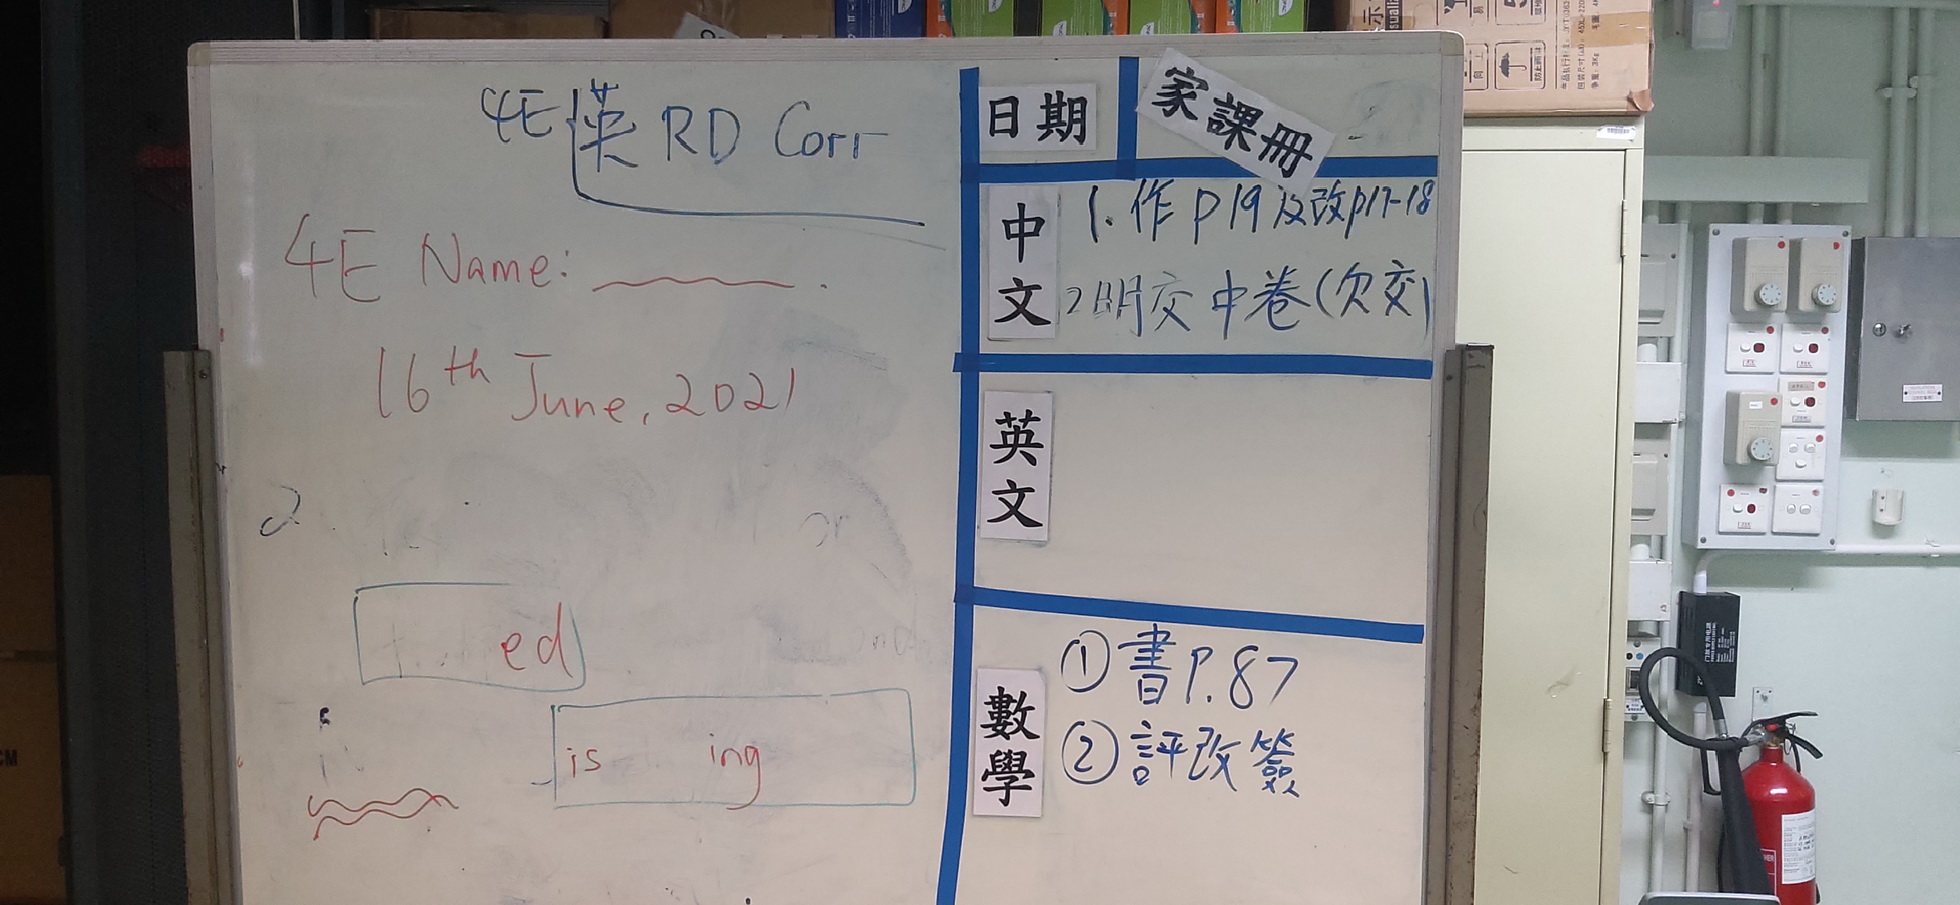 4E 英 RD Corr
4E Name:
16th June, 2021
2
or
ed
is ing
日期
家課冊
中文
1. 作 P19 及改 p17-18
2 明交中卷(欠交)
英文
數學
① 書 P.87
② 評改簽
防止潮